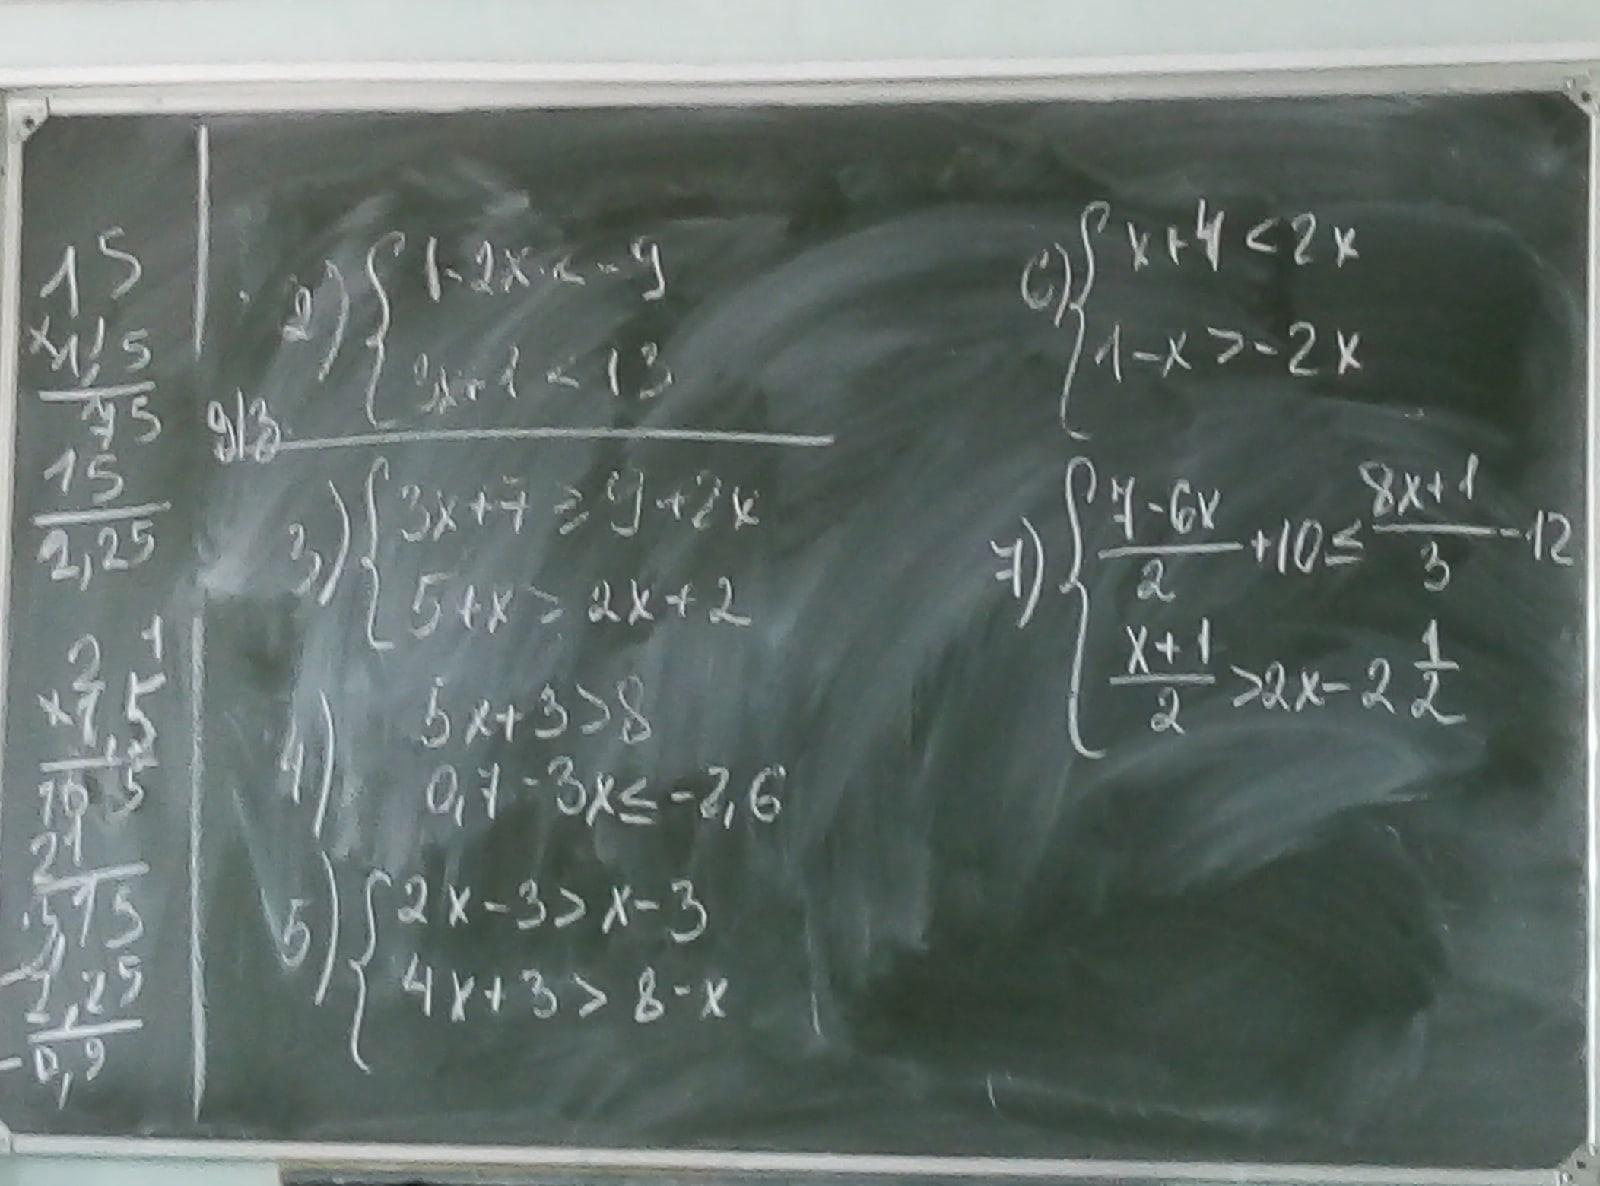 15
×1,5
75
15
2,25
2 1
×7,5
10 5
21
-2,25
-0,9
2) { 1-2x < -9
x+1 < 13
д/з
3) { 3x+7 ≥ 9+2x
5+x > 2x+2
4) 5x+3>8
0,7-3x≤-2,6
5) { 2x-3>x-3
4x+3>8-x
6) { x+4<2x
1-x>-2x
7) { (7-6x)/2 +10≤ (8x+1)/3 -12
(x+1)/2 >2x-2 1/2